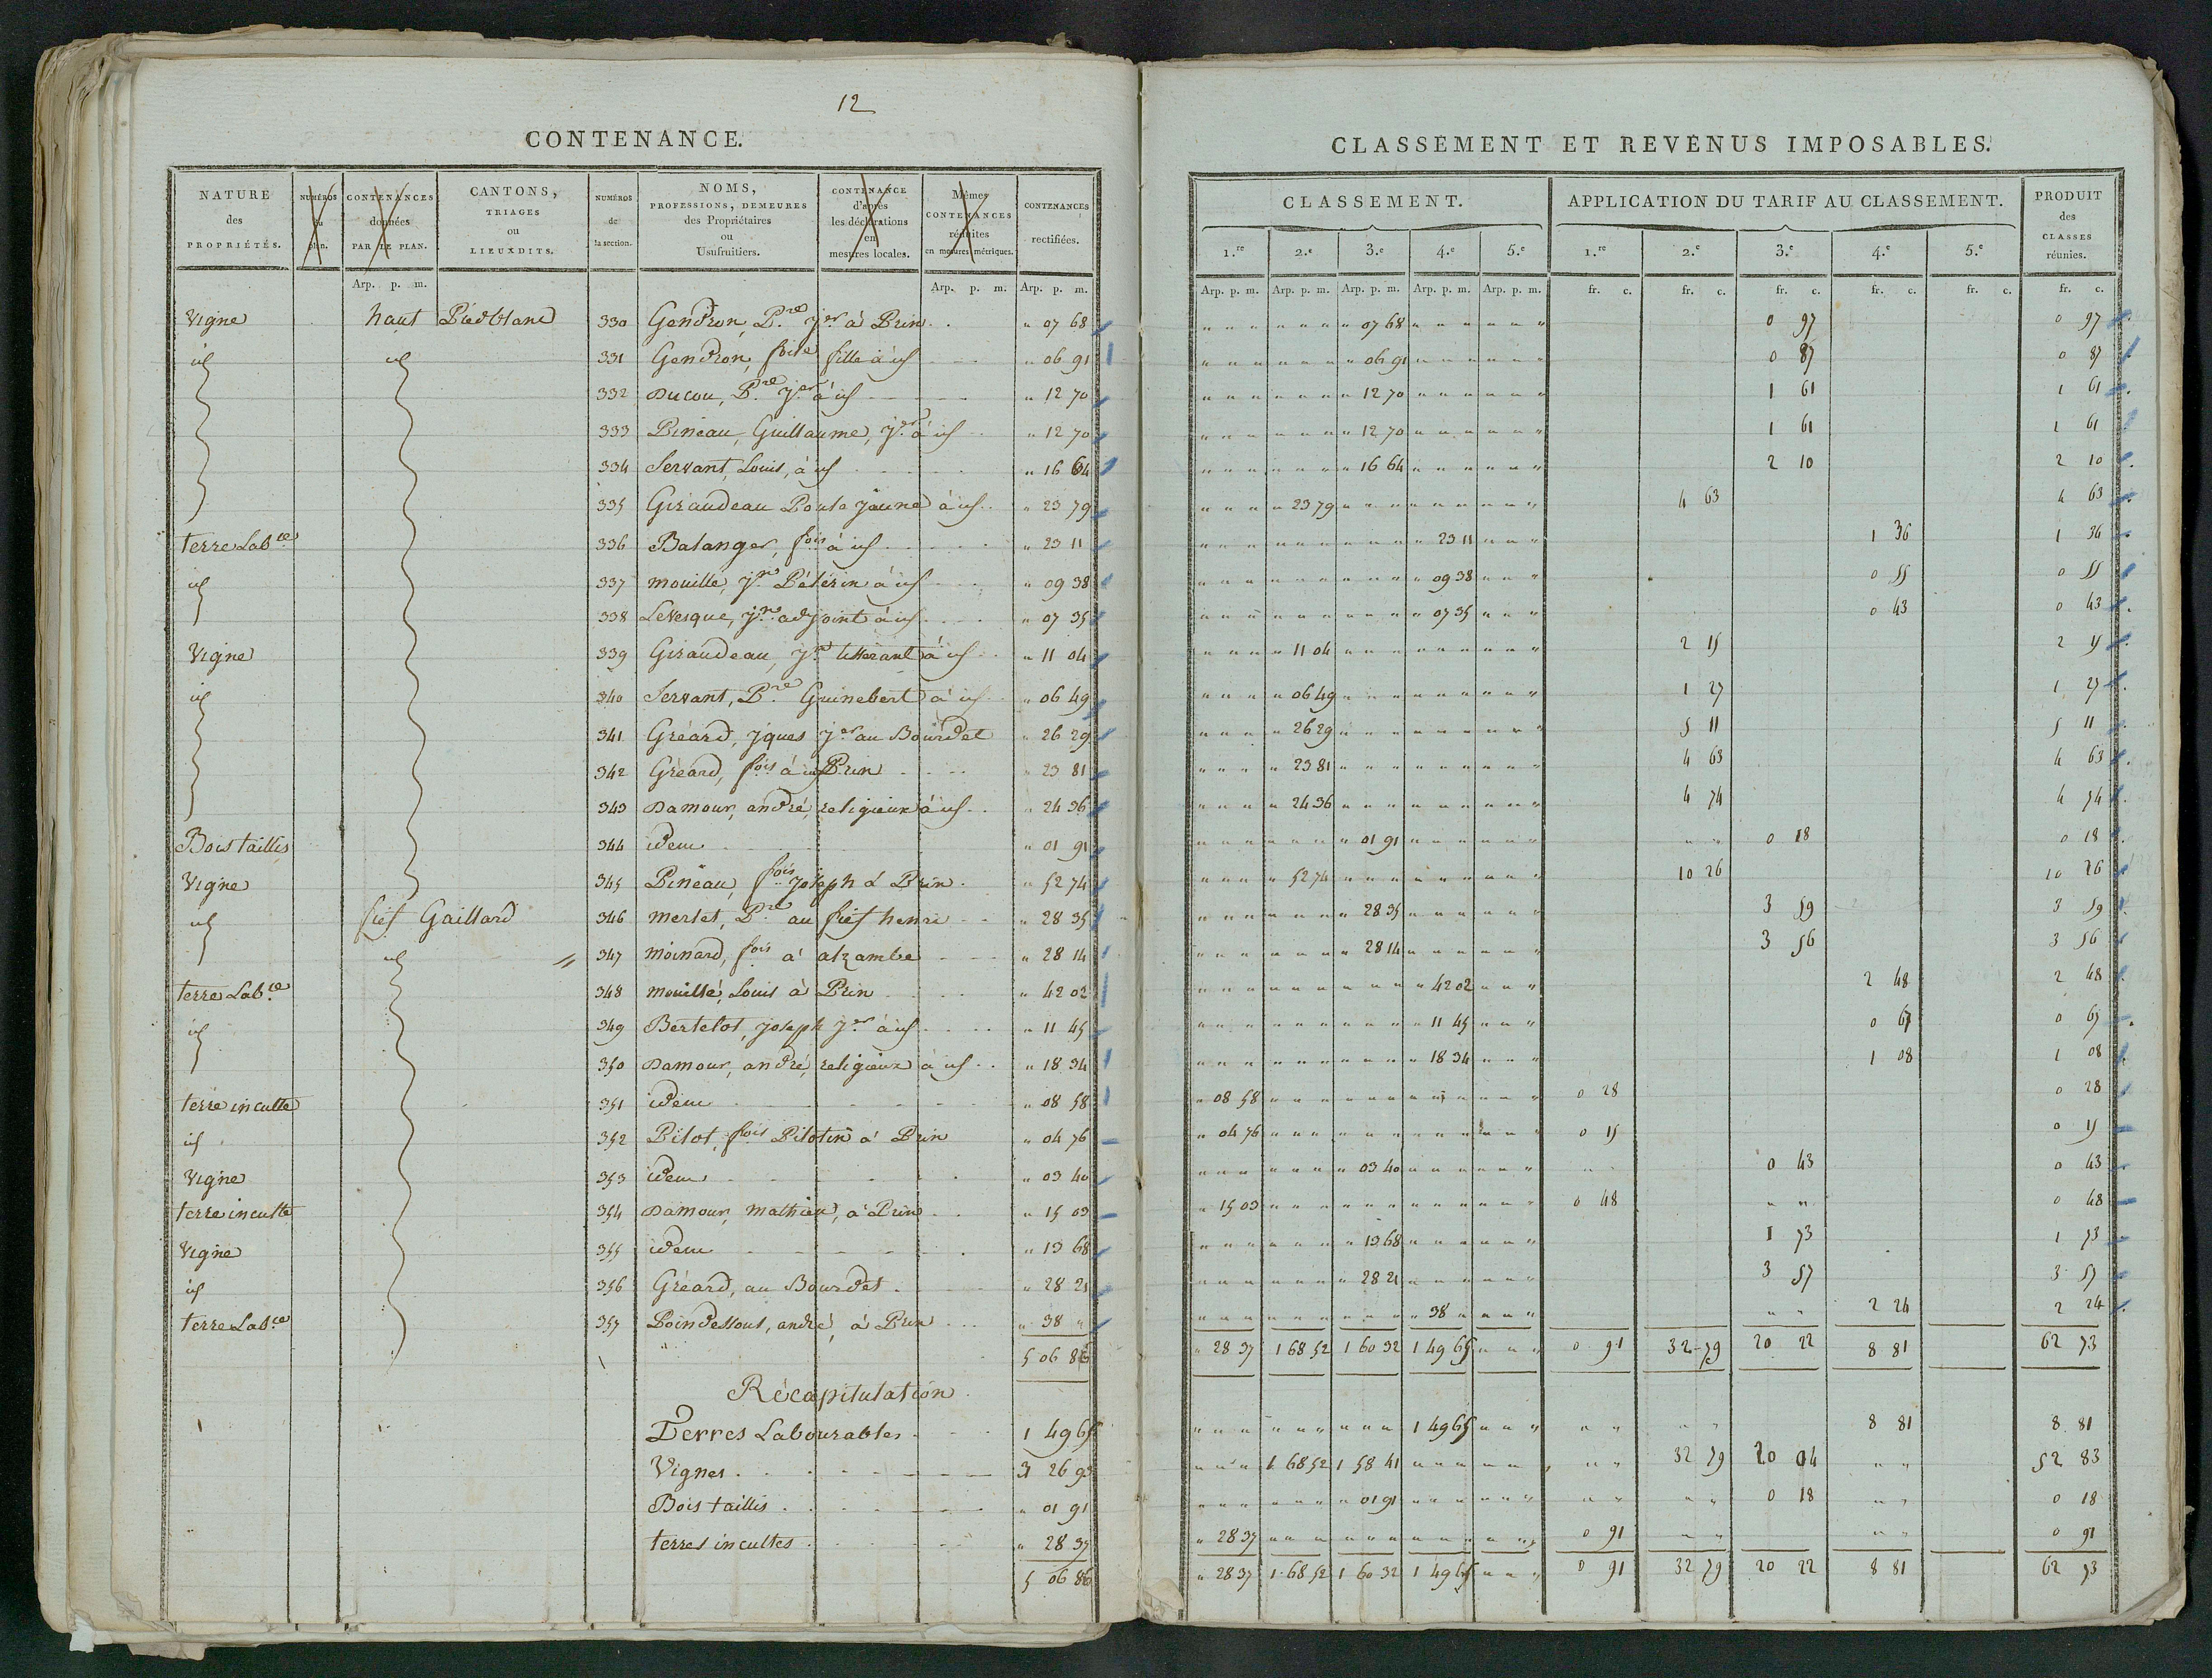 12
CONTENANCE.
NATURE des PROPRIÉTÉS. NUMÉROS du plan. CONTENANCES données PAR LE PLAN. CANTONS, TRIAGES ou LIEUXDITS. NUMÉROS de la section. NOMS, PROFESSIONS, DEMEURES des Propriétaires ou Usufruitiers. CONTENANCE d'après les déclarations en mesures locales. Mêmes CONTENANCES réduites en mesures métriques. CONTENANCES rectifiées.
Arp. p. m. Arp. p. m. Arp. p. m.
Vigne haut Piedblanc 330 Gendron, P.re j.er à Prin " 07 68
id id 331 Gendron, f.oise fille à id " 06 91
332 Ducou, P.re j.er à id " 12 70
333 Pineau, Guillaume, j.er à id " 12 70
334 Servant, Louis, à id " 16 64
335 Giraudeau Poule jaune à id " 23 79
terre Lab.ce 336 Balanger, f.ois à id " 23 11
id 337 mouillé, j.n Pélérin à id " 09 38
338 Levesque, j.n adjoint à id " 07 35
Vigne 339 Giraudeau, j.n tisserant à id " 11 04
id 340 Servant, P.re Guinebert à id " 06 49
341 Gréard, jques j.er au Bourdet " 26 29
342 Gréard, f.ois à Prin " 23 81
343 Damour, andré, religieux à id " 24 36
Bois taillis 344 idem " 01 91
Vigne 345 Pineau, f.ois joseph à Prin " 52 74
id fief Gaillard 346 merlet, P.re au fief henri " 28 35
id 347 moinard, f.ois à alzambe " 28 14
terre Lab.ce 348 mouillé, Louis à Prin " 42 02
id 349 Bertelot, joseph j.er à id " 11 45
350 Damour, andré, religieux à id " 18 34
terre inculte 351 idem " 08 58
id 352 Pilot, f.ois Pilotin à Prin " 04 76
Vigne 353 idem " 03 40
terre inculte 354 Damour, mathieu, à Prin " 15 03
Vigne 355 idem " 13 68
id 356 Gréard, au Bourdet " 28 21
terre Lab.ce 357 Poindessous, andré, à Prin " 38 "
5 06 86
Récapitulation
Terres Labourables 1 49 65
Vignes 3 26 93
Bois taillis " 01 91
terres incultes " 28 37
5 06 86
CLASSEMENT ET REVENUS IMPOSABLES.
CLASSEMENT. APPLICATION DU TARIF AU CLASSEMENT. PRODUIT des CLASSES réunies.
1.re 2.e 3.e 4.e 5.e 1.re 2.e 3.e 4.e 5.e
Arp. p. m. Arp. p. m. Arp. p. m. Arp. p. m. Arp. p. m. fr. c. fr. c. fr. c. fr. c. fr. c. fr. c.
" 07 68 0 97 0 97
" 06 91 0 87 0 87
" 12 70 1 61 1 61
" 12 70 1 61 1 61
" 16 64 2 10 2 10
" 23 79 4 63 4 63
" 23 11 1 36 1 36
" 09 38 0 55 0 55
" 07 35 0 43 0 43
" 11 04 2 15 2 15
" 06 49 1 27 1 27
" 26 29 5 11 5 11
" 23 81 4 63 4 63
" 24 36 4 74 4 74
" 01 91 " " 0 18 0 18
" 52 74 10 26 10 26
" 28 35 3 59 3 59
" 28 14 3 56 3 56
" 42 02 2 48 2 48
" 11 45 0 67 0 67
" 18 34 1 08 1 08
" 08 58 0 28 0 28
" 04 76 0 15 0 15
" 03 40 0 43 0 43
" 15 03 0 48 " " 0 48
" 13 68 1 73 1 73
" 28 21 3 57 3 57
" 38 " " " 2 24 2 24
" 28 37 1 68 52 1 60 32 1 49 65 " " " 0 91 32 79 20 22 8 81 62 73
1 49 65 " " " " " " " 8 81 8 81
" " " 1 68 52 1 58 41 " " 32 79 20 04 " " 52 83
" 01 91 " " " " 0 18 " " 0 18
" 28 37 0 91 " " " " 0 91
" 28 37 1 68 52 1 60 32 1 49 65 " " " 0 91 32 79 20 22 8 81 62 73